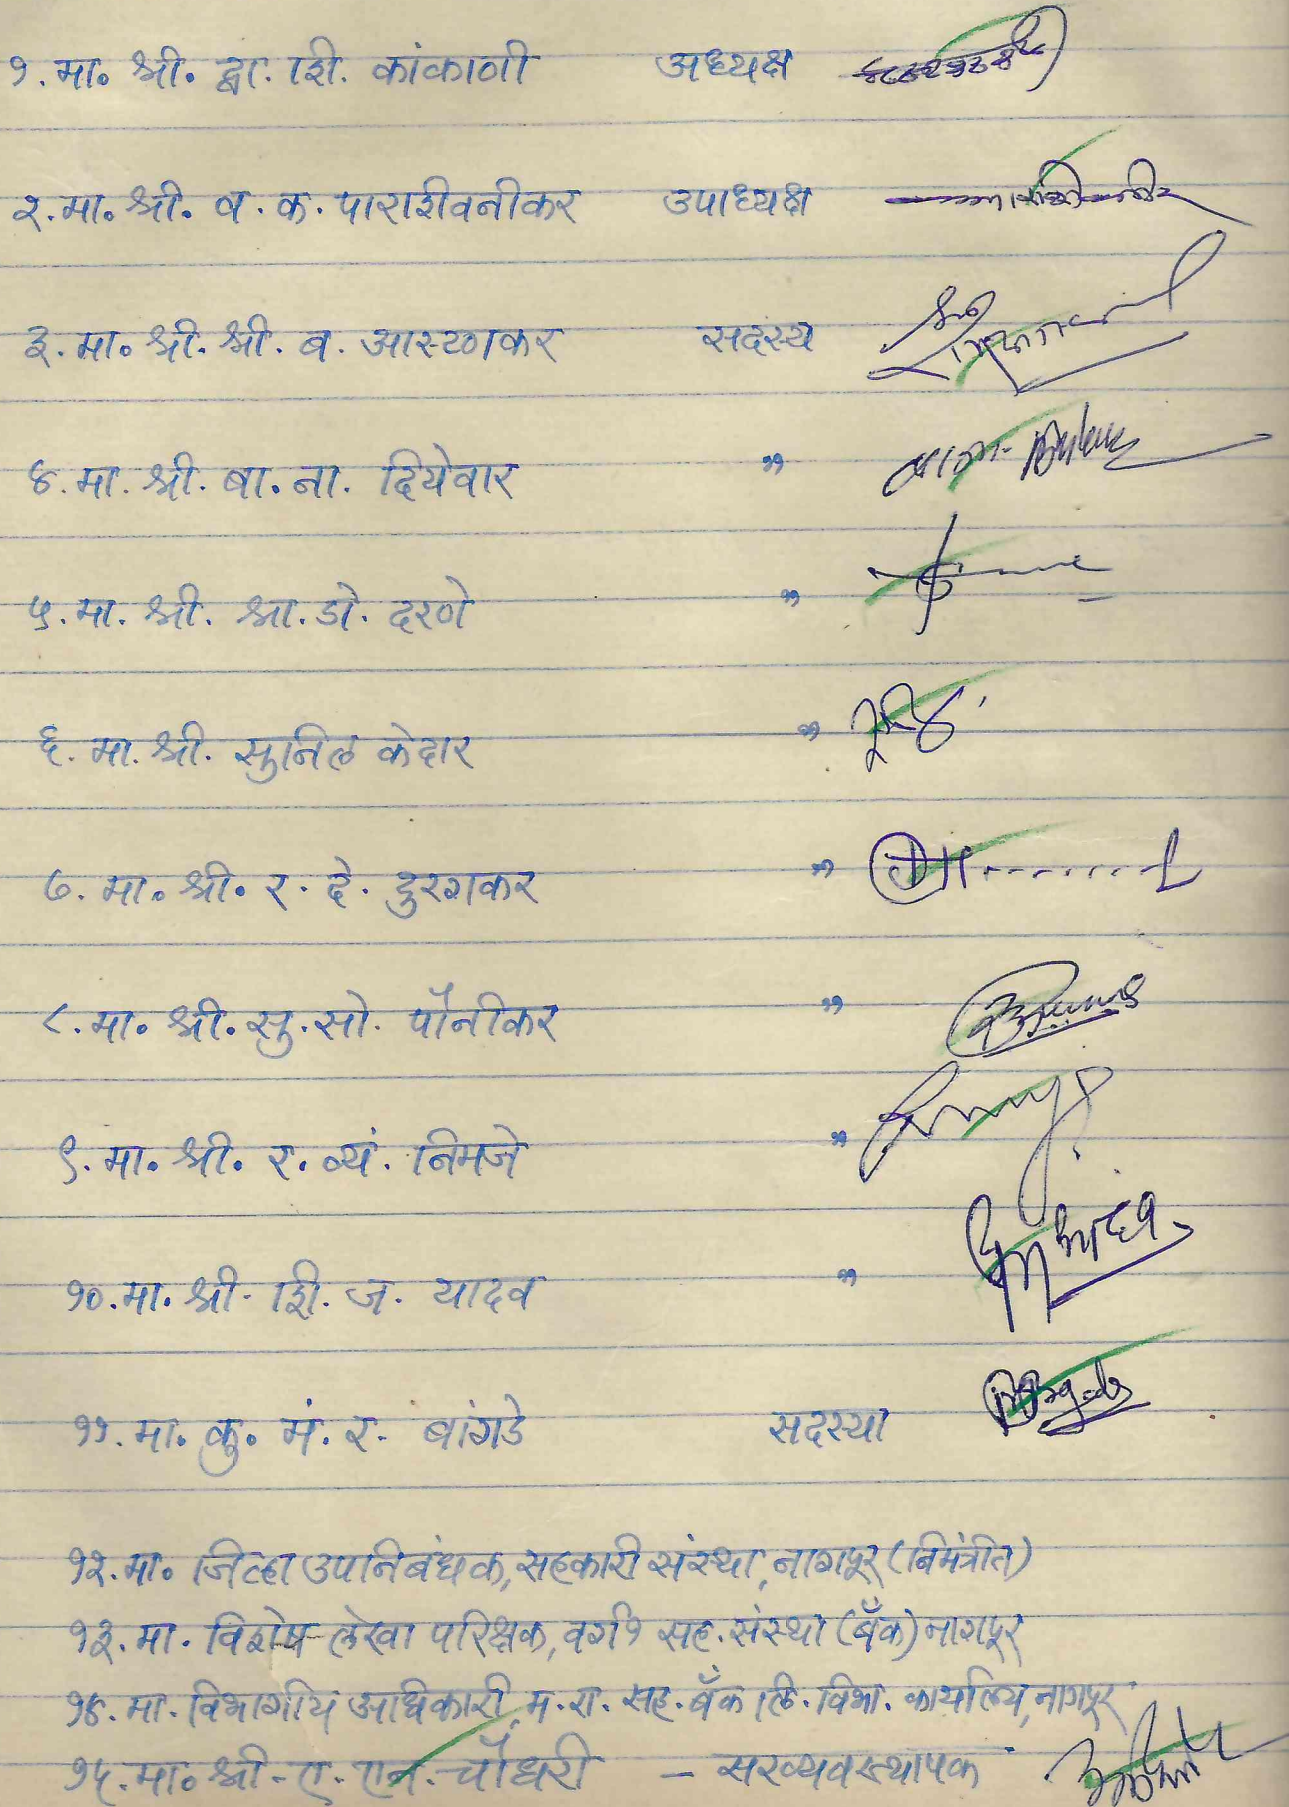 १. मा. श्री. द्वा. शि. कांकाणी अध्यक्ष
२. मा. श्री. व. क. पाराशीवनीकर उपाध्यक्ष
३. मा. श्री. श्री. ब. आस्टणकर सदस्य
४. मा. श्री. बा. ना. दियेवार "
५. मा. श्री. श्रा. डो. दरणे "
६. मा. श्री. सुनिल केदार "
७. मा. श्री. र. दे. दुरुगकर "
८. मा. श्री. सु. सो. पौनीकर "
९. मा. श्री. र. व्यं. निमजे "
१०. मा. श्री. शि. ज. यादव "
११. मा. कु. मं. र. बांगडे सदस्या
१२. मा. जिल्हा उपनिबंधक, सहकारी संस्था, नागपूर (निमंत्रीत)
१३. मा. विशेष लेखा परिक्षक, वर्ग १ सह. संस्था (बँक) नागपूर
१४. मा. विभागीय अधिकारी, म. रा. सह. बँक लि. विभा. कार्यालय, नागपूर
१५. मा. श्री. ए. एन. चौधरी - सरव्यवस्थापक